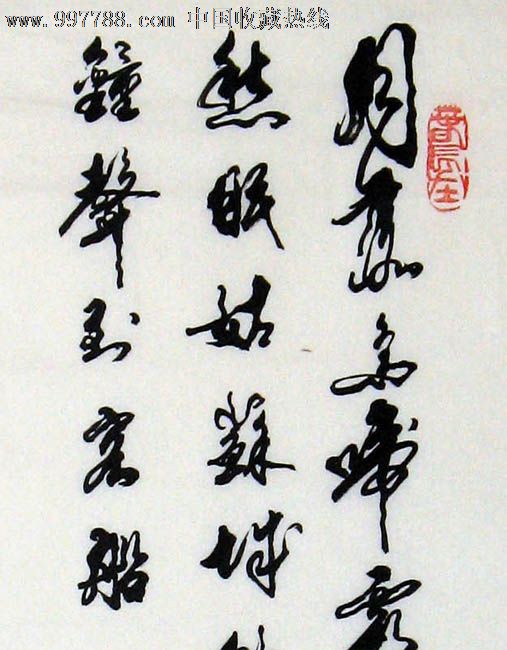 www.997788.com 中国收藏热线
月落烏啼霜
愁眠姑蘇城
鐘聲到客船